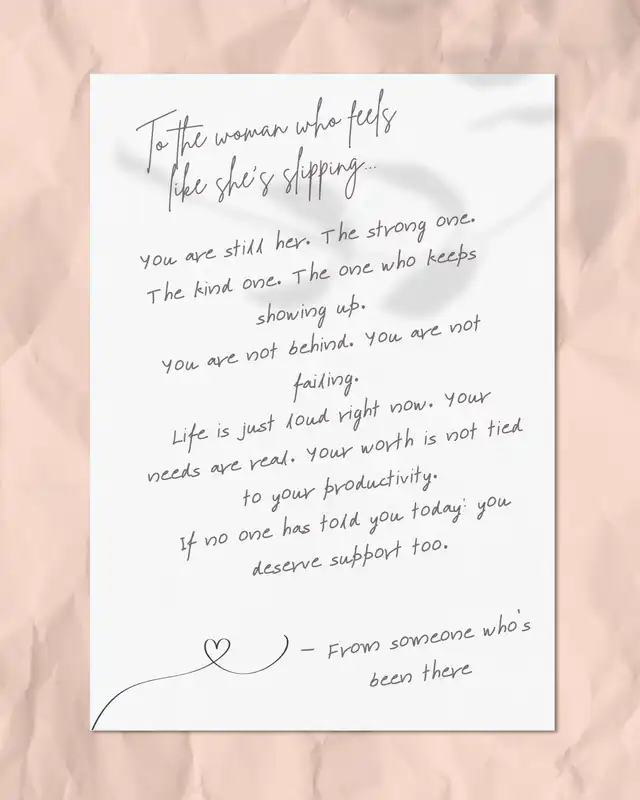 To the woman who feels
like she's slipping...
You are still her. The strong one.
The kind one. The one who keeps
showing up.
You are not behind. You are not
failing.
Life is just loud right now. Your
needs are real. Your worth is not tied
to your productivity.
If no one has told you today: you
deserve support too.
— From someone who's
been there